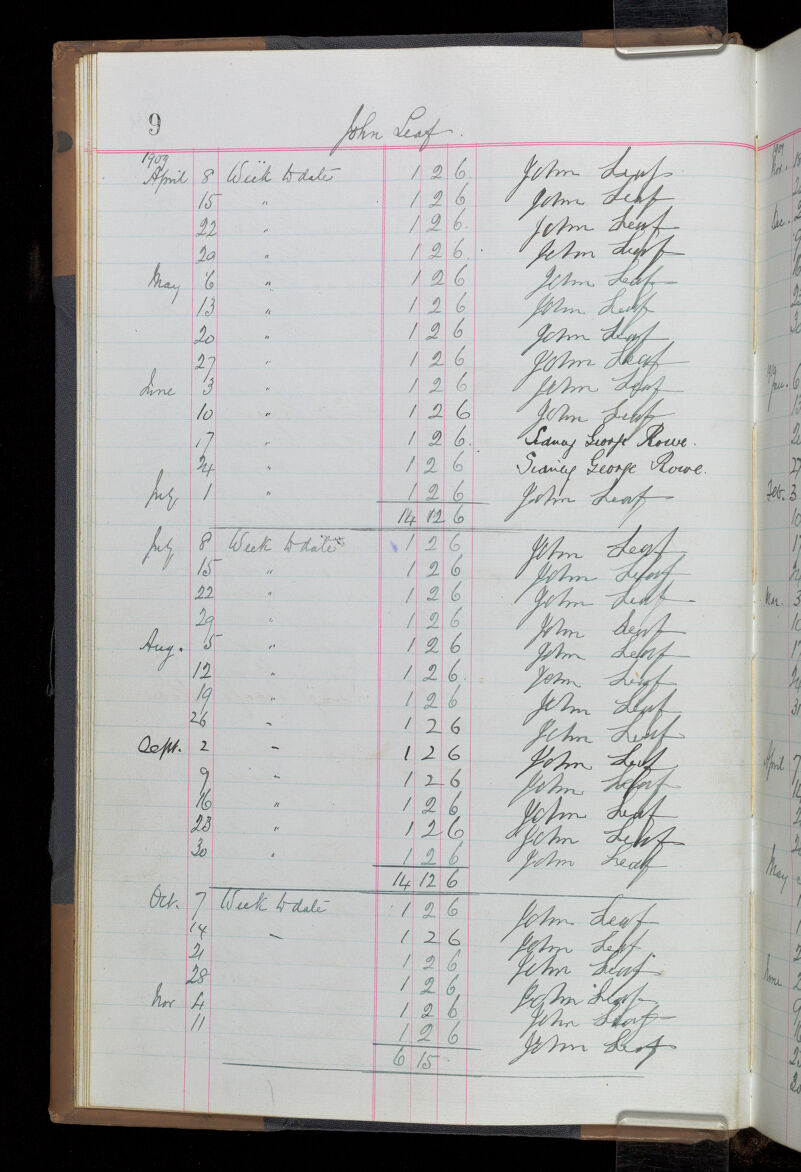 9
John Leaf.
1909
April 8 Week to date 1 2 6 John Leaf
15 " 1 2 6 John Leaf
22 " 1 2 6 John Leaf
29 " 1 2 6 John Leaf
May 6 " 1 2 6 John Leaf
13 " 1 2 6 John Leaf
20 " 1 2 6 John Leaf
27 " 1 2 6 John Leaf
June 3 " 1 2 6 John Leaf
10 " 1 2 6 John Leaf
17 " 1 2 6 Sidney George Rowe.
24 " 1 2 6 Sidney George Rowe.
July 1 " 1 2 6 John Leaf
14 12 6
July 8 Week to date 1 2 6 John Leaf
15 " 1 2 6 John Leaf
22 " 1 2 6 John Leaf
29 1 2 6 John Leaf
Aug. 5 " 1 2 6 John Leaf
12 " 1 2 6 John Leaf
19 " 1 2 6 John Leaf
26 " 1 2 6 John Leaf
Sept. 2 " 1 2 6 John Leaf
9 " 1 2 6 John Leaf
16 " 1 2 6 John Leaf
23 " 1 2 6 John Leaf
30 " 1 2 6 John Leaf
14 12 6
Oct. 7 Week to date 1 2 6 John Leaf
14 " 1 2 6 John Leaf
21 1 2 6 John Leaf
28 1 2 6 John Leaf
Nov 4 1 2 6 John Leaf
11 1 2 6 John Leaf
6 15
1909
Nov.
Dec.
1910
Jan. 6
Feb. 3
10
17
Mar. 3
10
17
31
April 7
May
June